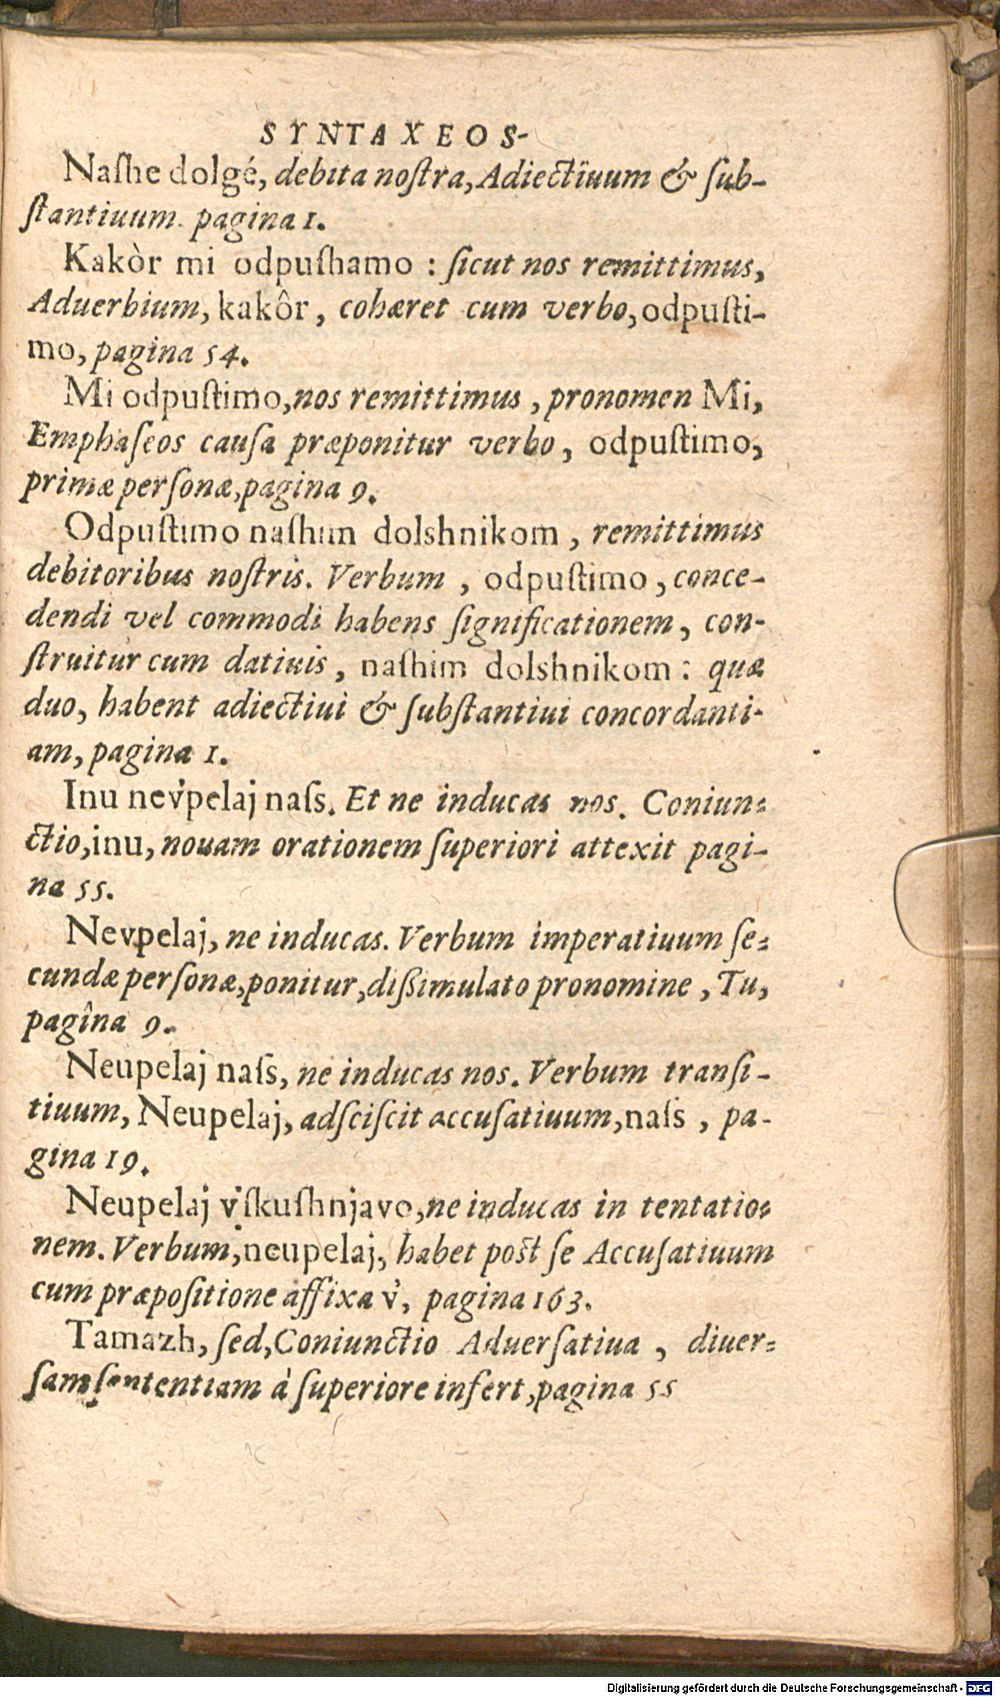 SYNTAXEOS-
Naſhe dolgé, debita noſtra, Adiectiuum & ſub-
ſtantiuum. pagina 1.
Kakòr mi odpuſhamo : ſicut nos remittimus,
Aduerbium, kakôr, cohæret cum verbo, odpuſti-
mo, pagina 54.
Mi odpuſtimo, nos remittimus, pronomen Mi,
Emphaſeos cauſa præponitur verbo, odpuſtimo,
primæ perſonæ, pagina 9.
Odpuſtimo naſhim dolshnikom, remittimus
debitoribus noſtris. Verbum, odpuſtimo, conce-
dendi vel commodi habens ſignificationem, con-
ſtruitur cum datiuis, naſhim dolshnikom: quæ
duo, habent adiectiui & ſubſtantiui concordanti-
am, pagina 1.
Inu nev̓pelaj naſs. Et ne inducas nos. Coniun-
ctio, inu, nouam orationem ſuperiori attexit pagi-
na 55.
Nevpelaj, ne inducas. Verbum imperatiuum ſe-
cundæ perſonæ, ponitur, diſsimulato pronomine, Tu,
pagîna 9.
Neupelaj naſs, ne inducas nos. Verbum tranſi-
tiuum, Neupelaj, adſciſcit accuſatiuum, naſs, pa-
gina 19.
Neupelaj v̓ſkuſhnjavo, ne inducas in tentatio-
nem. Verbum, neupelaj, habet poſt ſe Accuſatiuum
cum præpoſitione affixa v̓, pagina 163.
Tamazh, ſed, Coniunctio Aduerſatiua, diuer-
ſam ſententiam à ſuperiore infert, pagina 55
Digitalisierung gefördert durch die Deutsche Forschungsgemeinschaft - DFG